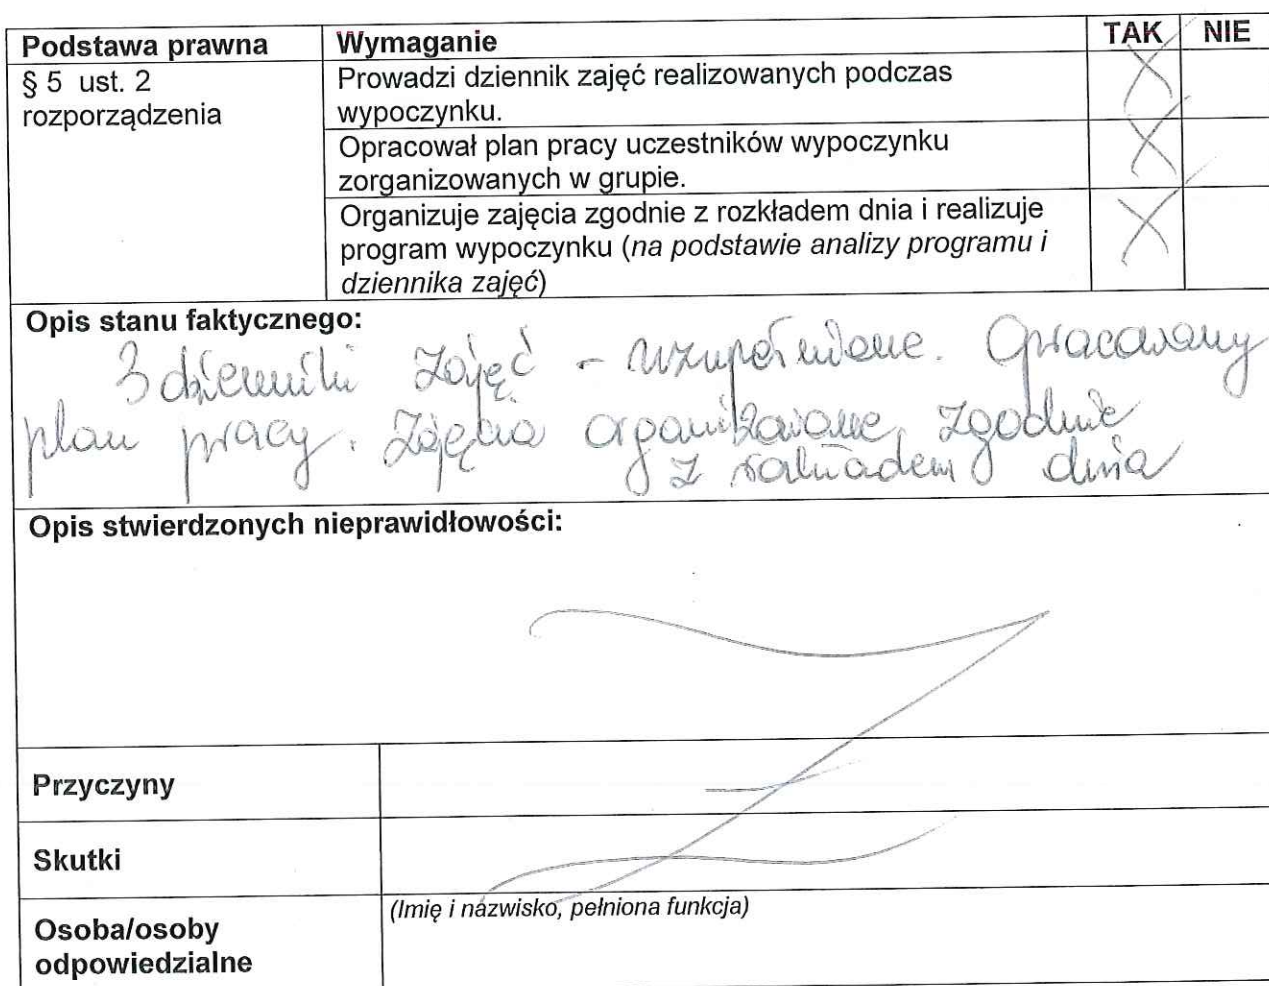 Podstawa prawna Wymaganie TAK NIE
§ 5 ust. 2 rozporządzenia
Prowadzi dziennik zajęć realizowanych podczas
wypoczynku. X
Opracował plan pracy uczestników wypoczynku
zorganizowanych w grupie. X
Organizuje zajęcia zgodnie z rozkładem dnia i realizuje
program wypoczynku (na podstawie analizy programu i
dziennika zajęć) X
Opis stanu faktycznego:
3 dzienniki zajęć - uzupełnione. Opracowany
plan pracy. Zajęcia organizowane zgodnie
z rozkładem dnia
Opis stwierdzonych nieprawidłowości:
Przyczyny
Skutki
(Imię i nazwisko, pełniona funkcja)
Osoba/osoby
odpowiedzialne